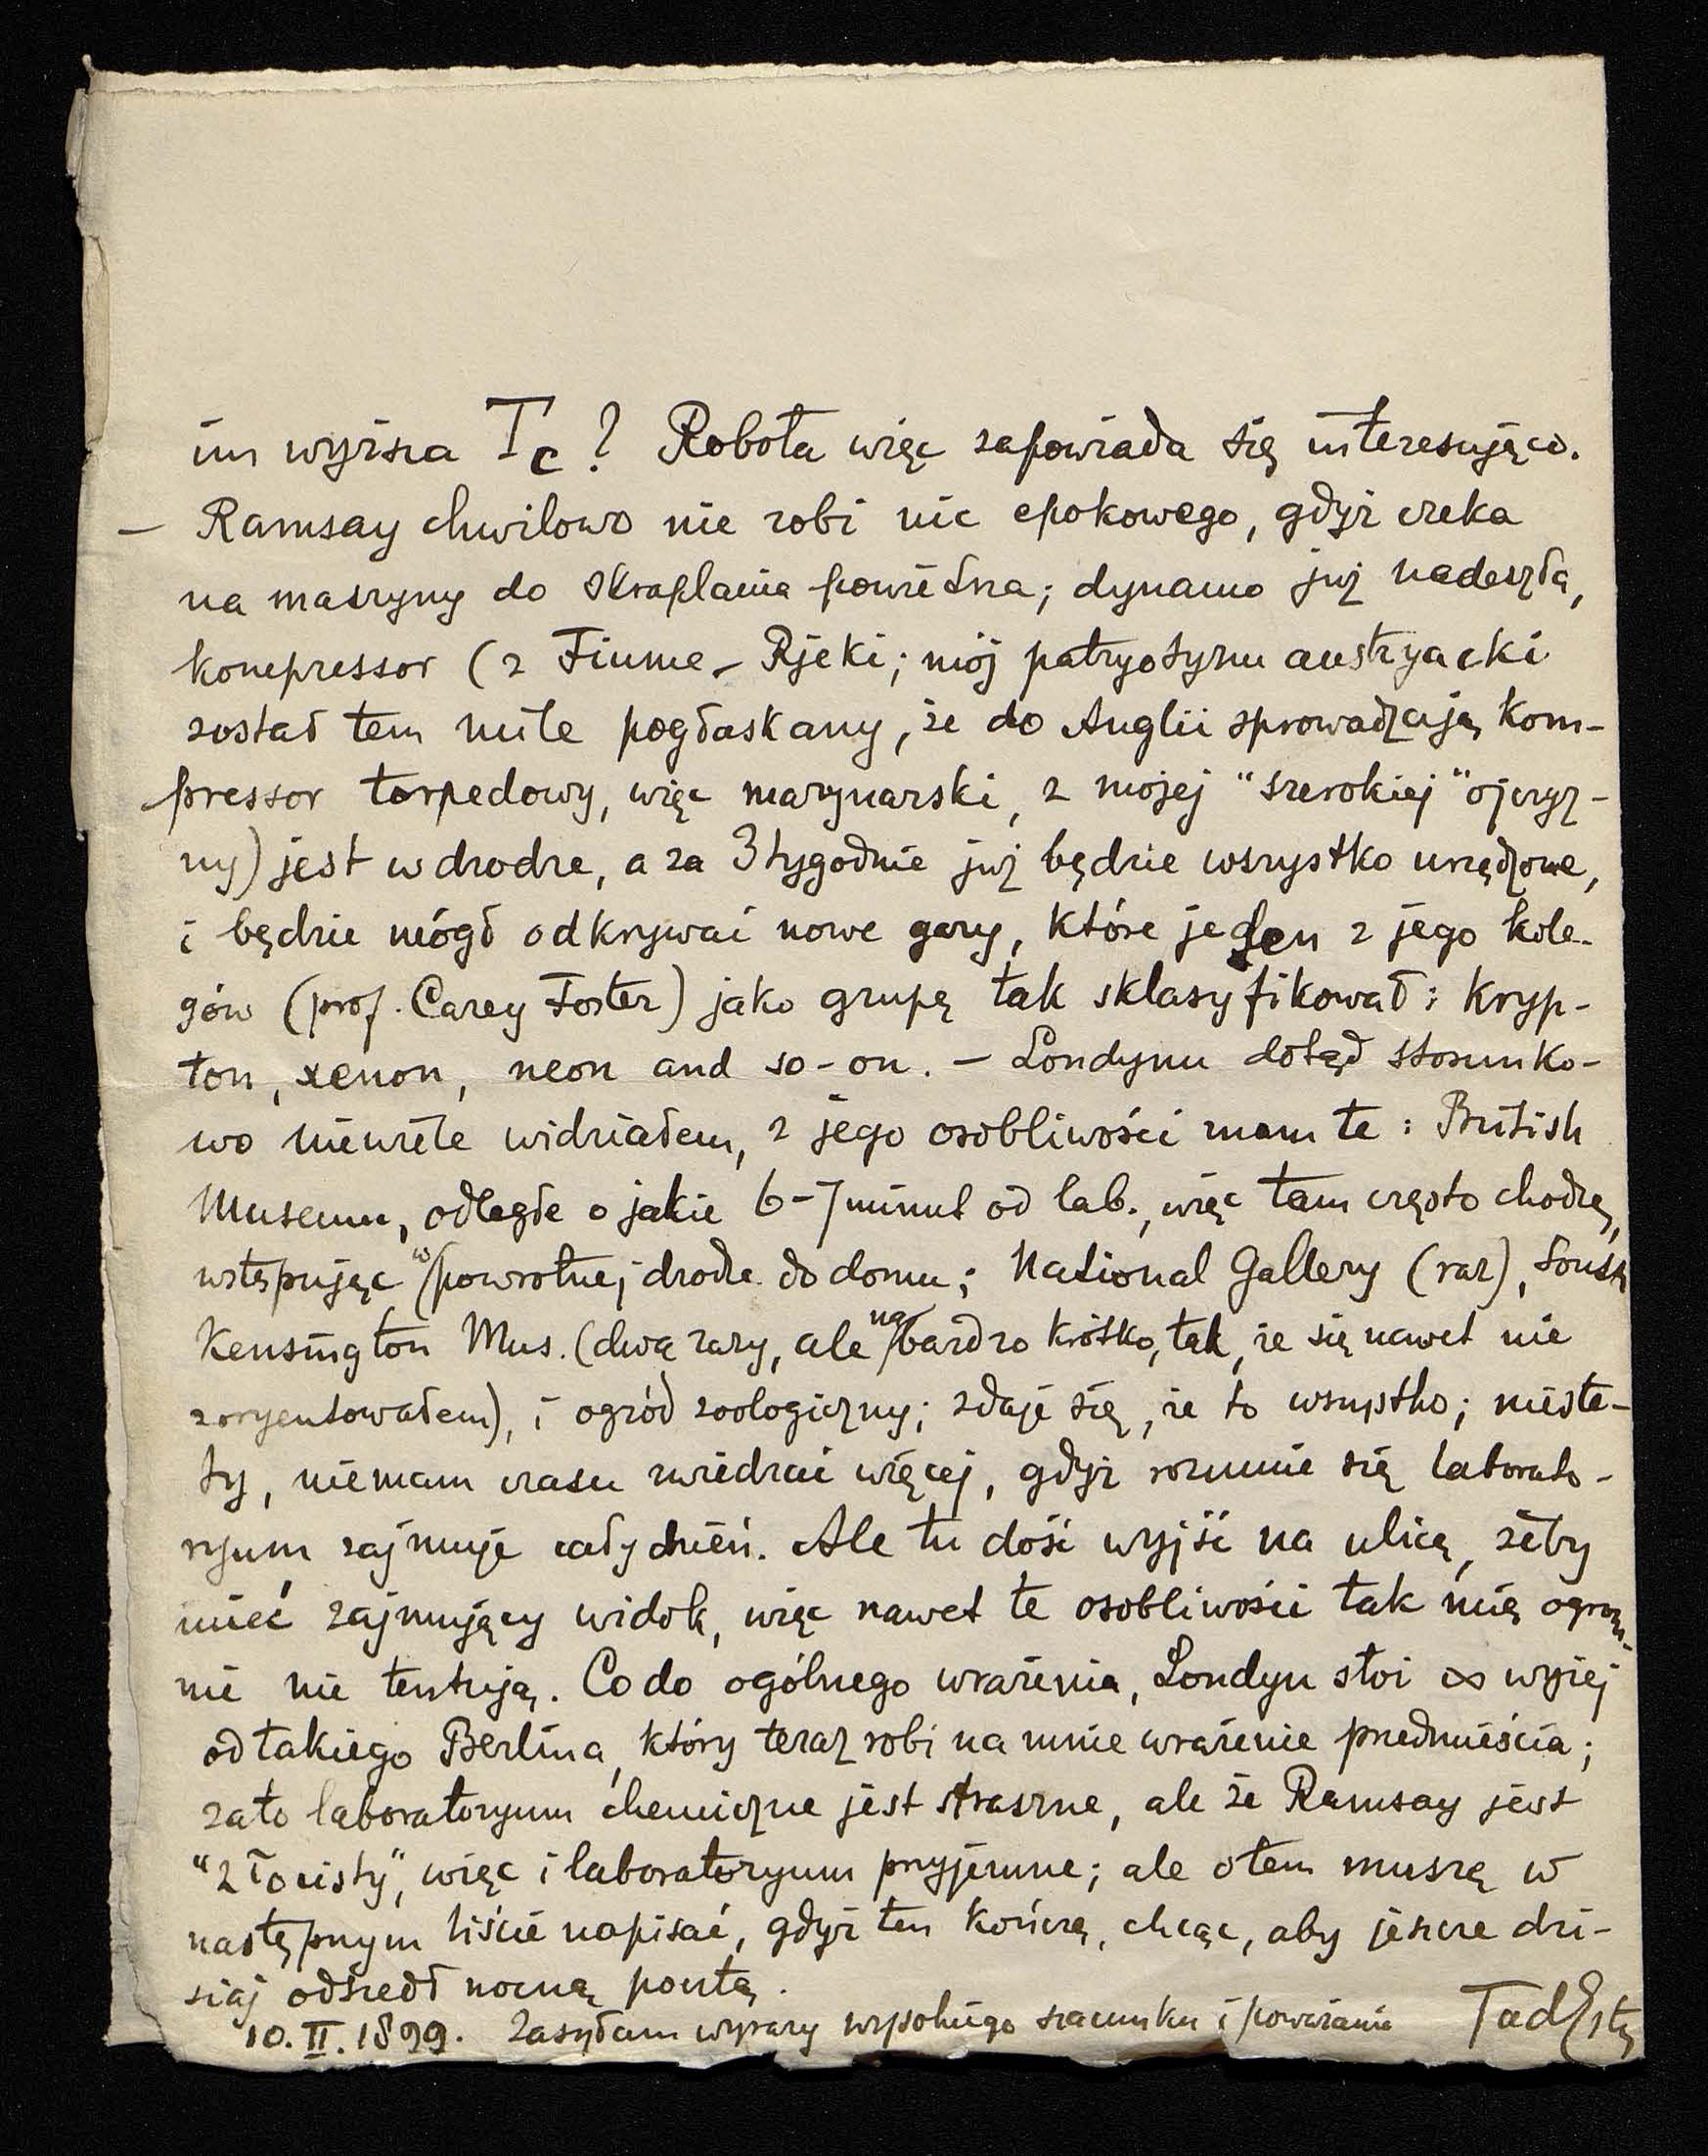 im wyższa Tc? Robota więc zapowiada się interesująco.
— Ramsay chwilowo nie robi nic epokowego, gdyż czeka
na maszyny do skraplania powietrza; dynamo już nadeszła,
kompressor (z Fiume – Rjeki; mój patryotyzm austryacki
został tem mile pogłaskany, że do Anglii sprowadzają kom-
pressor torpedowy, więc marynarski, z mojej "szerokiej" ojczyz-
ny) jest w drodze, a za 3 tygodnie już będzie wszystko urządzone,
i będzie mógł odkrywać nowe gazy, które jeden z jego kole-
gów (prof. Carey Foster) jako grupę tak sklasyfikował: kryp-
ton, xenon, neon and so-on. — Londynu dotąd stosunko-
wo niewiele widziałem, z jego osobliwości znam te: British
Museum, odległe o jakie 6–7 minut od lab., więc tam często chodzę,
wstępując w powrotnej drodze do domu; National Gallery (raz), South
Kensington Mus. (dwa razy, ale na bardzo krótko, tak, że się nawet nie
zoryentowałem), i ogród zoologiczny; zdaje się, że to wszystko; nieste-
ty, niemam czasu zwiedzać więcej, gdyż rozumie się laborato-
ryum zajmuje cały dzień. Ale tu dość wyjść na ulicę, żeby
mieć zajmujący widok, więc nawet te osobliwości tak mię ogrom-
nie nie tentują. Co do ogólnego wrażenia, Londyn stoi ∞ wyżej
od takiego Berlina, który teraz robi na mnie wrażenie przedmieścia;
zato laboratoryum chemiczne jest straszne, ale że Ramsay jest
"złocisty", więc i laboratoryum przyjemne; ale o tem muszę w
następnym liście napisać, gdyż ten kończę, chcąc, aby jeszcze dzi-
siaj odszedł nocną pocztą.
10. II. 1899. Zasyłam wyrazy wysokiego szacunku i poważania TadEstr